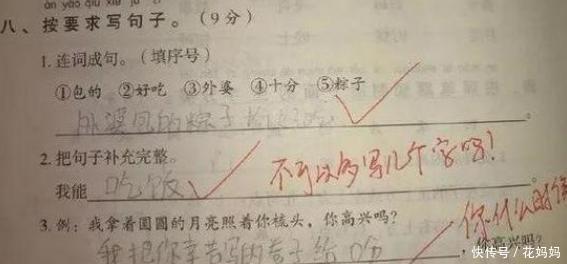 àn yāo qiú xiě jù zi
八、按要求写句子。(9分)
1. 连词成句。(填序号)
①包的 ②好吃 ③外婆 ④十分 ⑤粽子
外婆包的粽子十分好吃
2. 把句子补充完整。
我能 吃饭 。
不可以多写几个字吗!
3. 例:我拿着圆圆的月亮照着你梳头,你高兴吗?
你什么时候
我把你辛苦写的卷子给 ,你高兴吗?
快传号/花妈妈